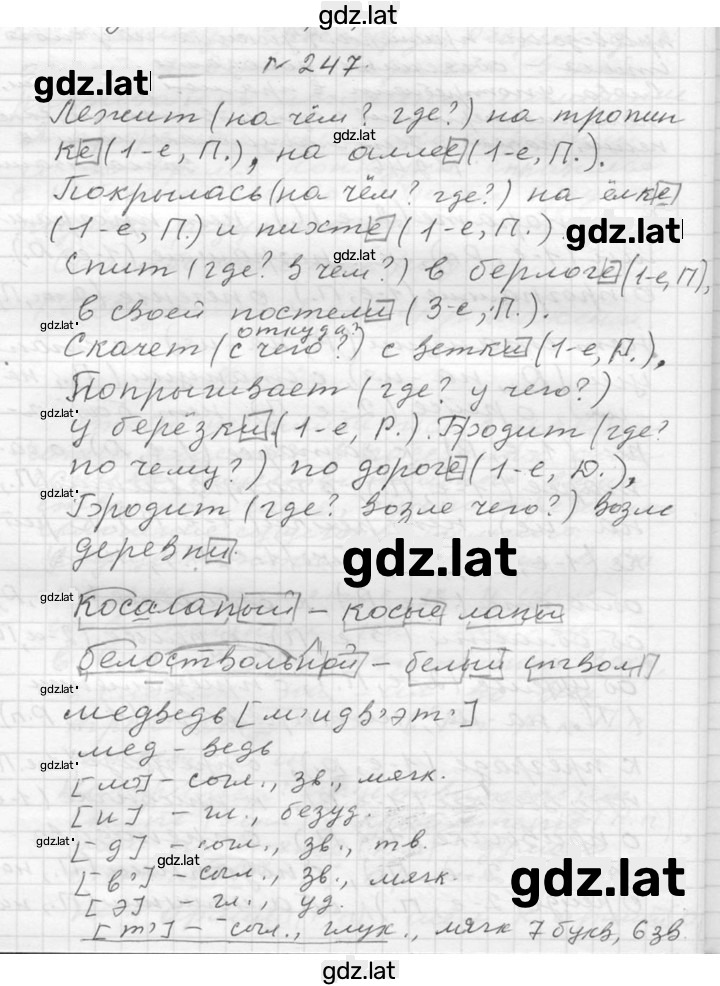 gdz.lat
№ 247.
gdz.lat
Лежит (на чём? где?) на тропин
gdz.lat
ке (1-е, П.), на аллее (1-е, П.).
Покрылась (на чём? где?) на ёлке
(1-е, П.) и пихте (1-е, П.)
gdz.lat
gdz.lat
Спит (где? в чём?) в берлоге (1-е, П),
в своей постели (3-е, П.).
gdz.lat
откуда?
Скачет (с чего?) с ветки (1-е, Р.),
Попрыгивает (где? у чего?)
gdz.lat
у берёзки (1-е, Р.). Бродит (где?
по чему?) по дороге (1-е, Д.),
gdz.lat
Бродит (где? возле чего?) возле
деревни.
gdz.lat
gdz.lat
косалапый – косые лапы
белоствольной – белый ствол
gdz.lat
медведь [м'идв'эт']
мед - ведь
gdz.lat
[м'] – согл., зв., мягк.
[и] – гл., безуд.
gdz.lat
[д] – согл., зв., тв.
gdz.lat
[в'] – согл., зв., мягк.
gdz.lat
[э] – гл., уд.
[т'] – согл., глух., мягк 7 букв, 6 зв
gdz.lat